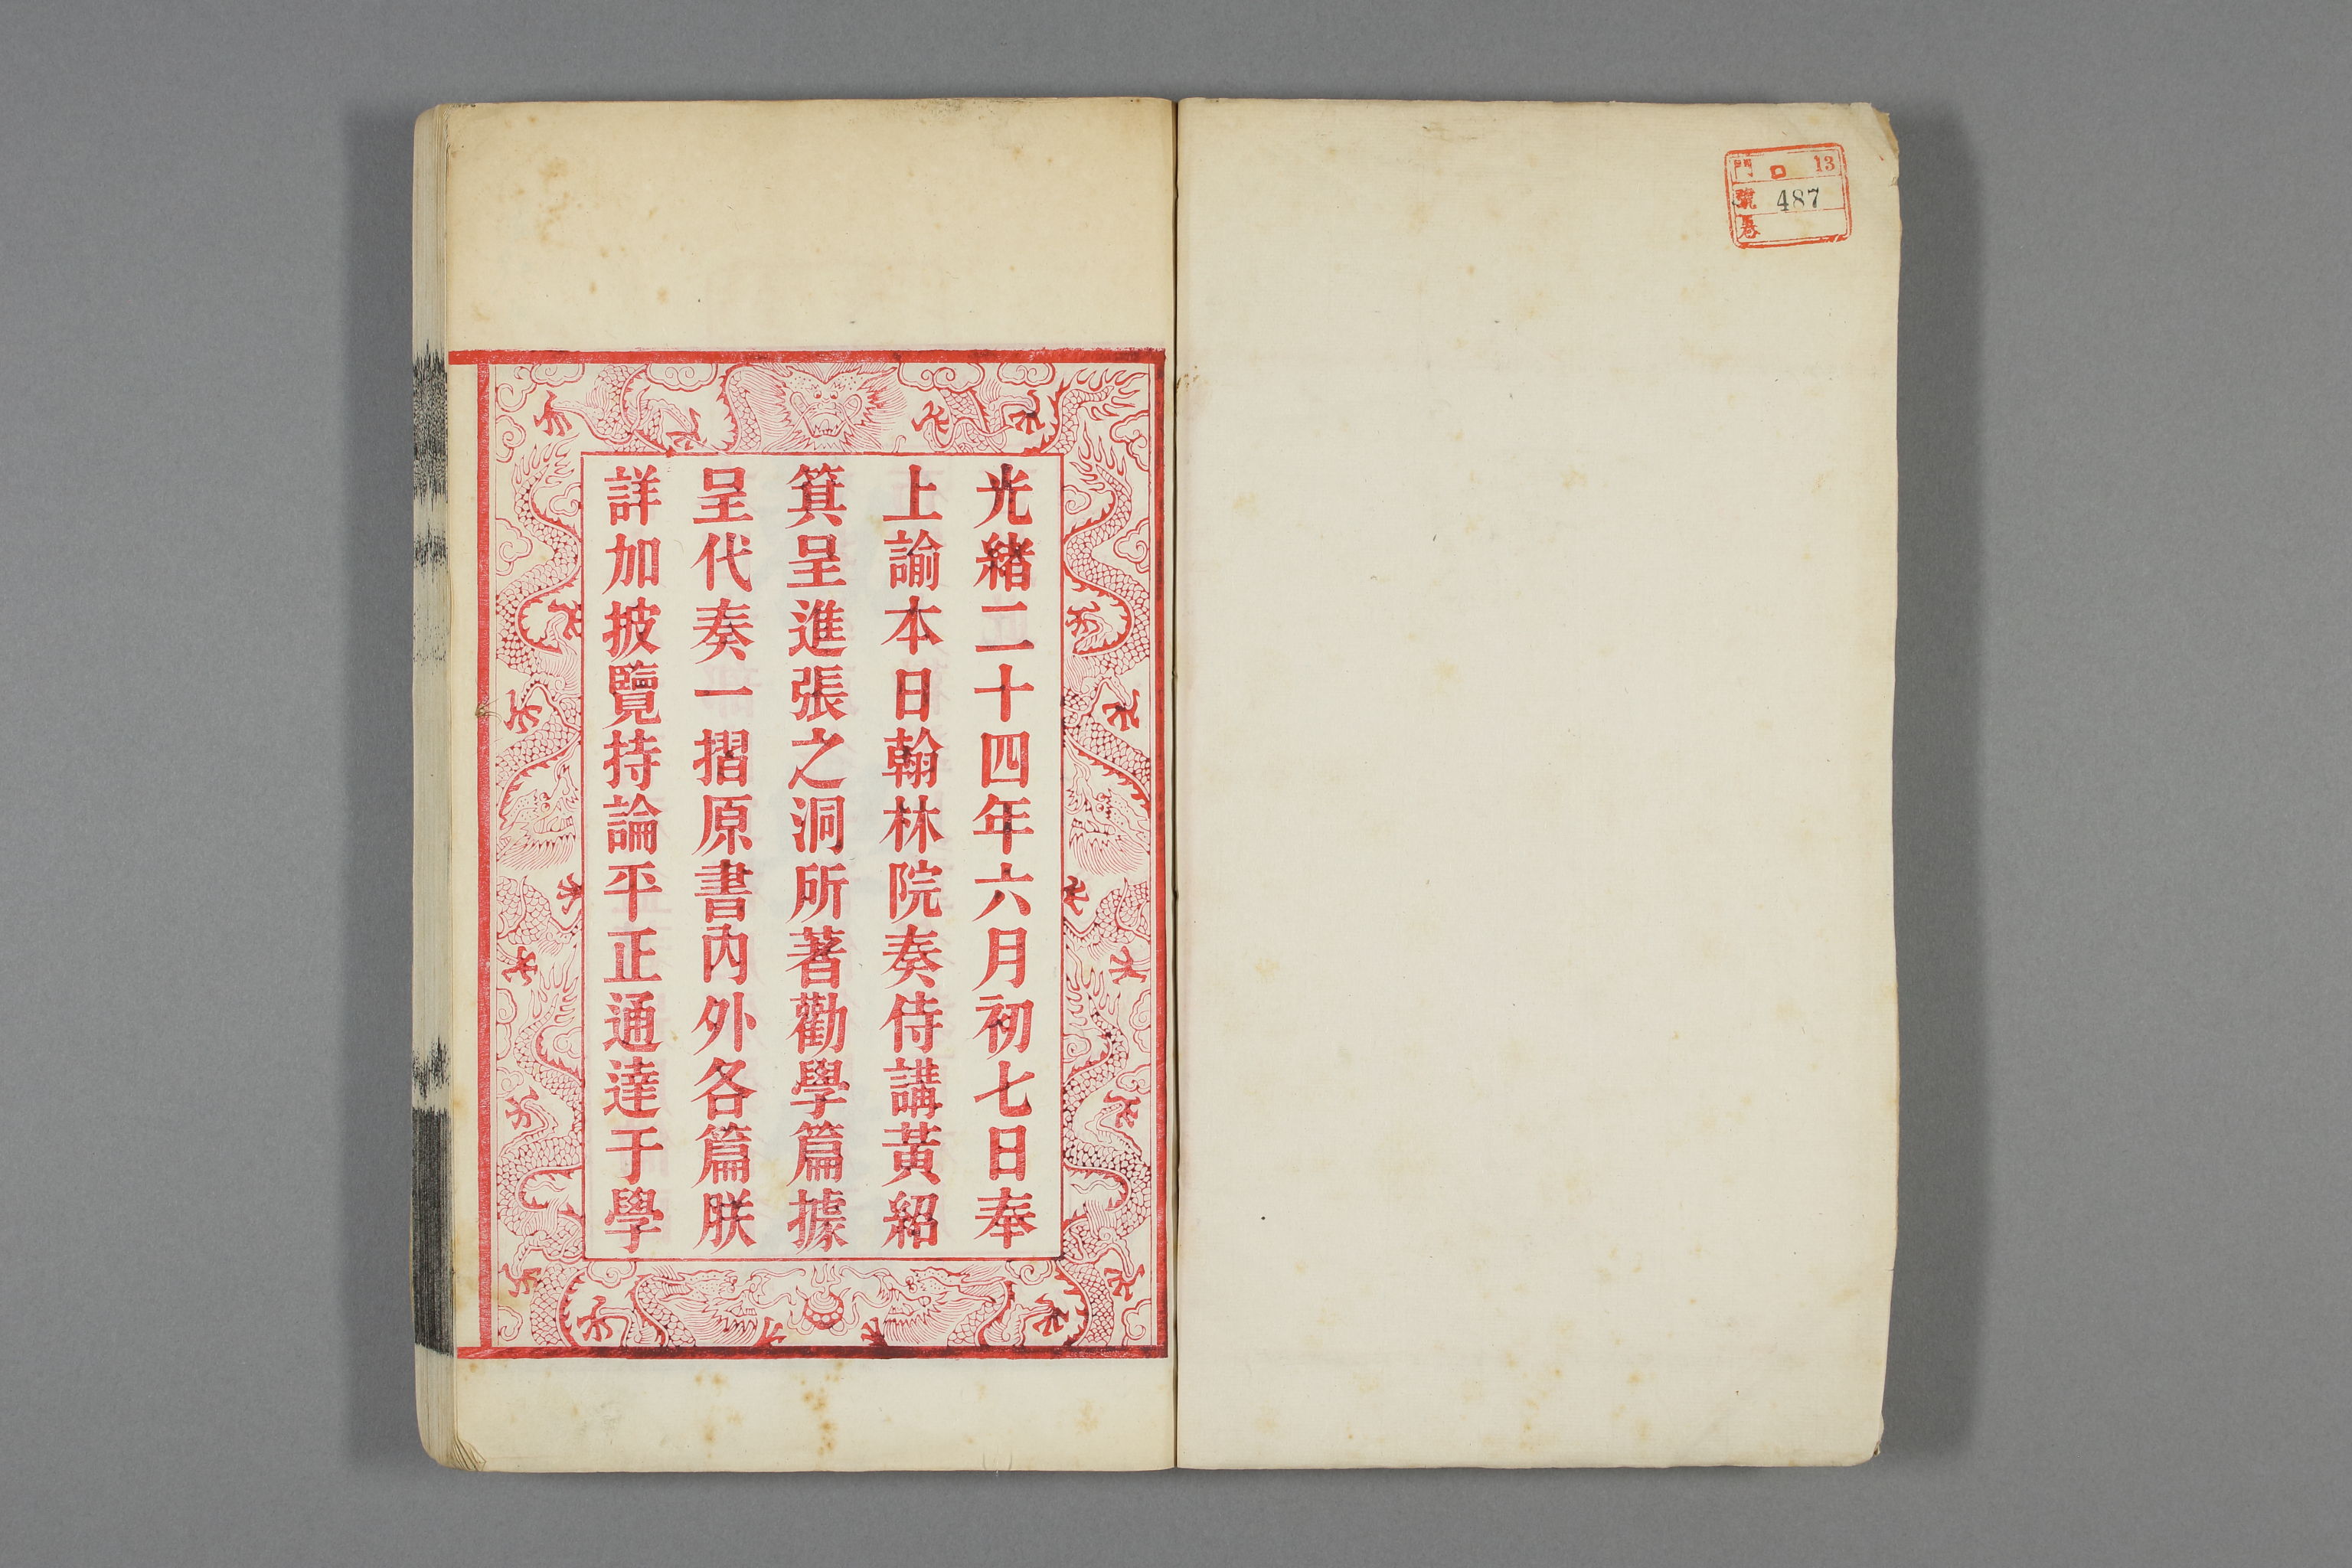 門 ロ 13
號 487
卷
光緒二十四年六月初七日奉
上諭本日翰林院奏侍講黃紹
箕呈進張之洞所著勸學篇據
呈代奏一摺原書內外各篇朕
詳加披覽持論平正通達于學